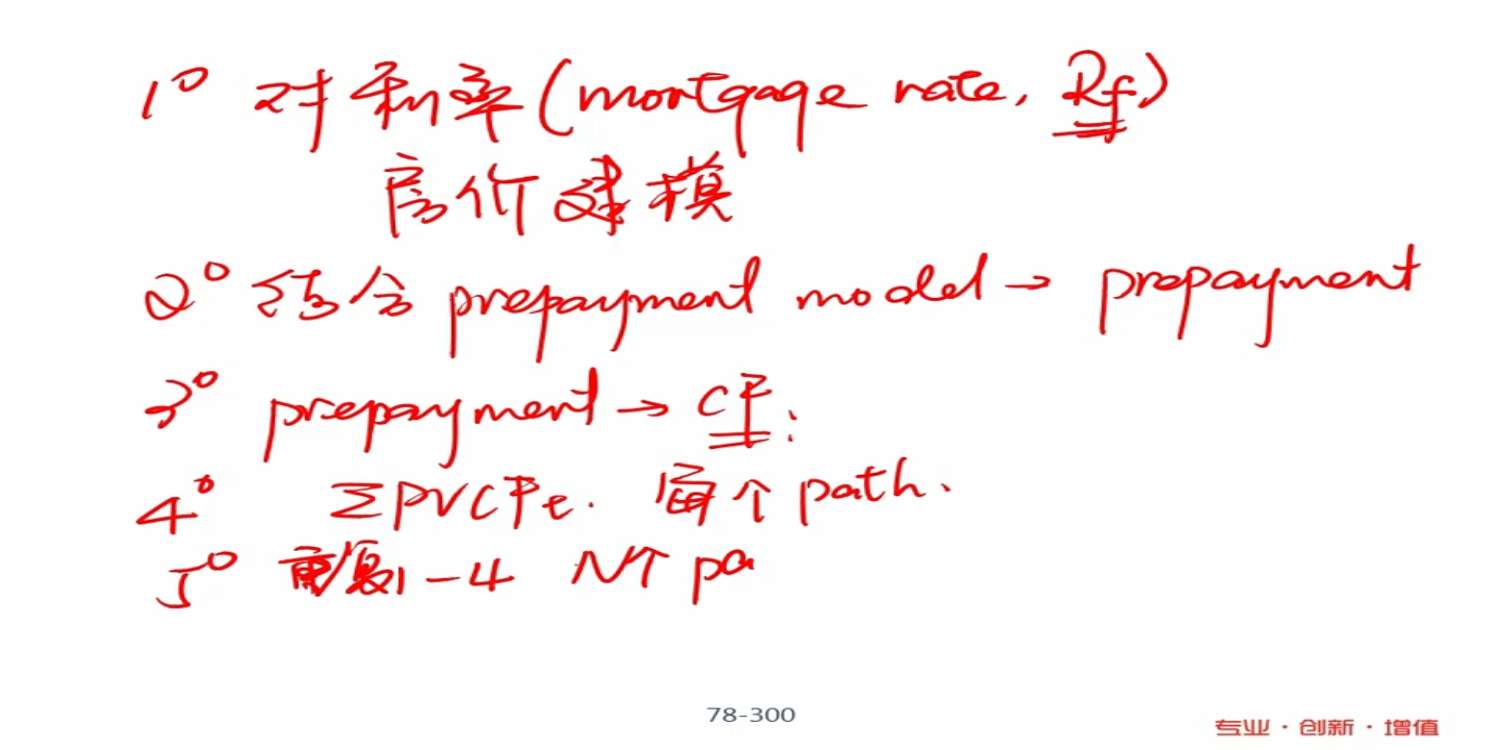 1° 对利率(mortgage rate, Rf)
房价建模
2° 结合 prepayment model → prepayment
3° prepayment → CF.
4° ΣPVCFt. 每个 path.
5° 重复1-4 N个 pa
78-300
专业·创新·增值